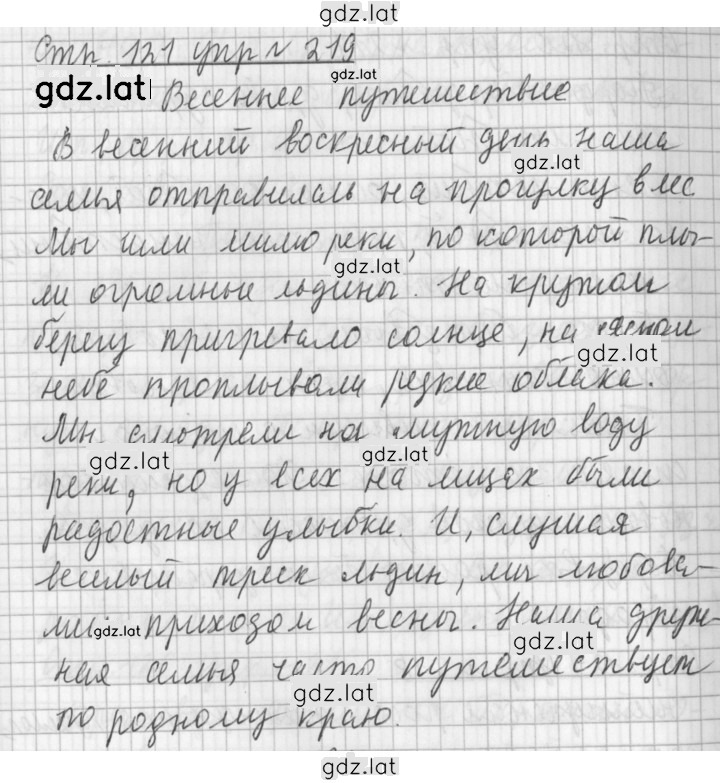 gdz.lat
Стр. 121 упр № 219
gdz.lat
gdz.lat Весеннее путешествие
В весенний воскресный день наша
gdz.lat
семья отправилась на прогулку в лес
Мы шли мимо реки, по которой плы-
gdz.lat
ли огромные льдины. На крутом
берегу пригревало солнце, на ясном
gdz.lat
небе проплывали редкие облака.
Мы смотрели на мутную воду
gdz.lat gdz.lat
реки, но у всех на лицах были
радостные улыбки. И, слушая
веселый треск льдин, мы любова-
ли gdz.lat приходом весны. Наша друж-
gdz.lat
ная семья часто путешествует
gdz.lat
по родному краю.
gdz.lat